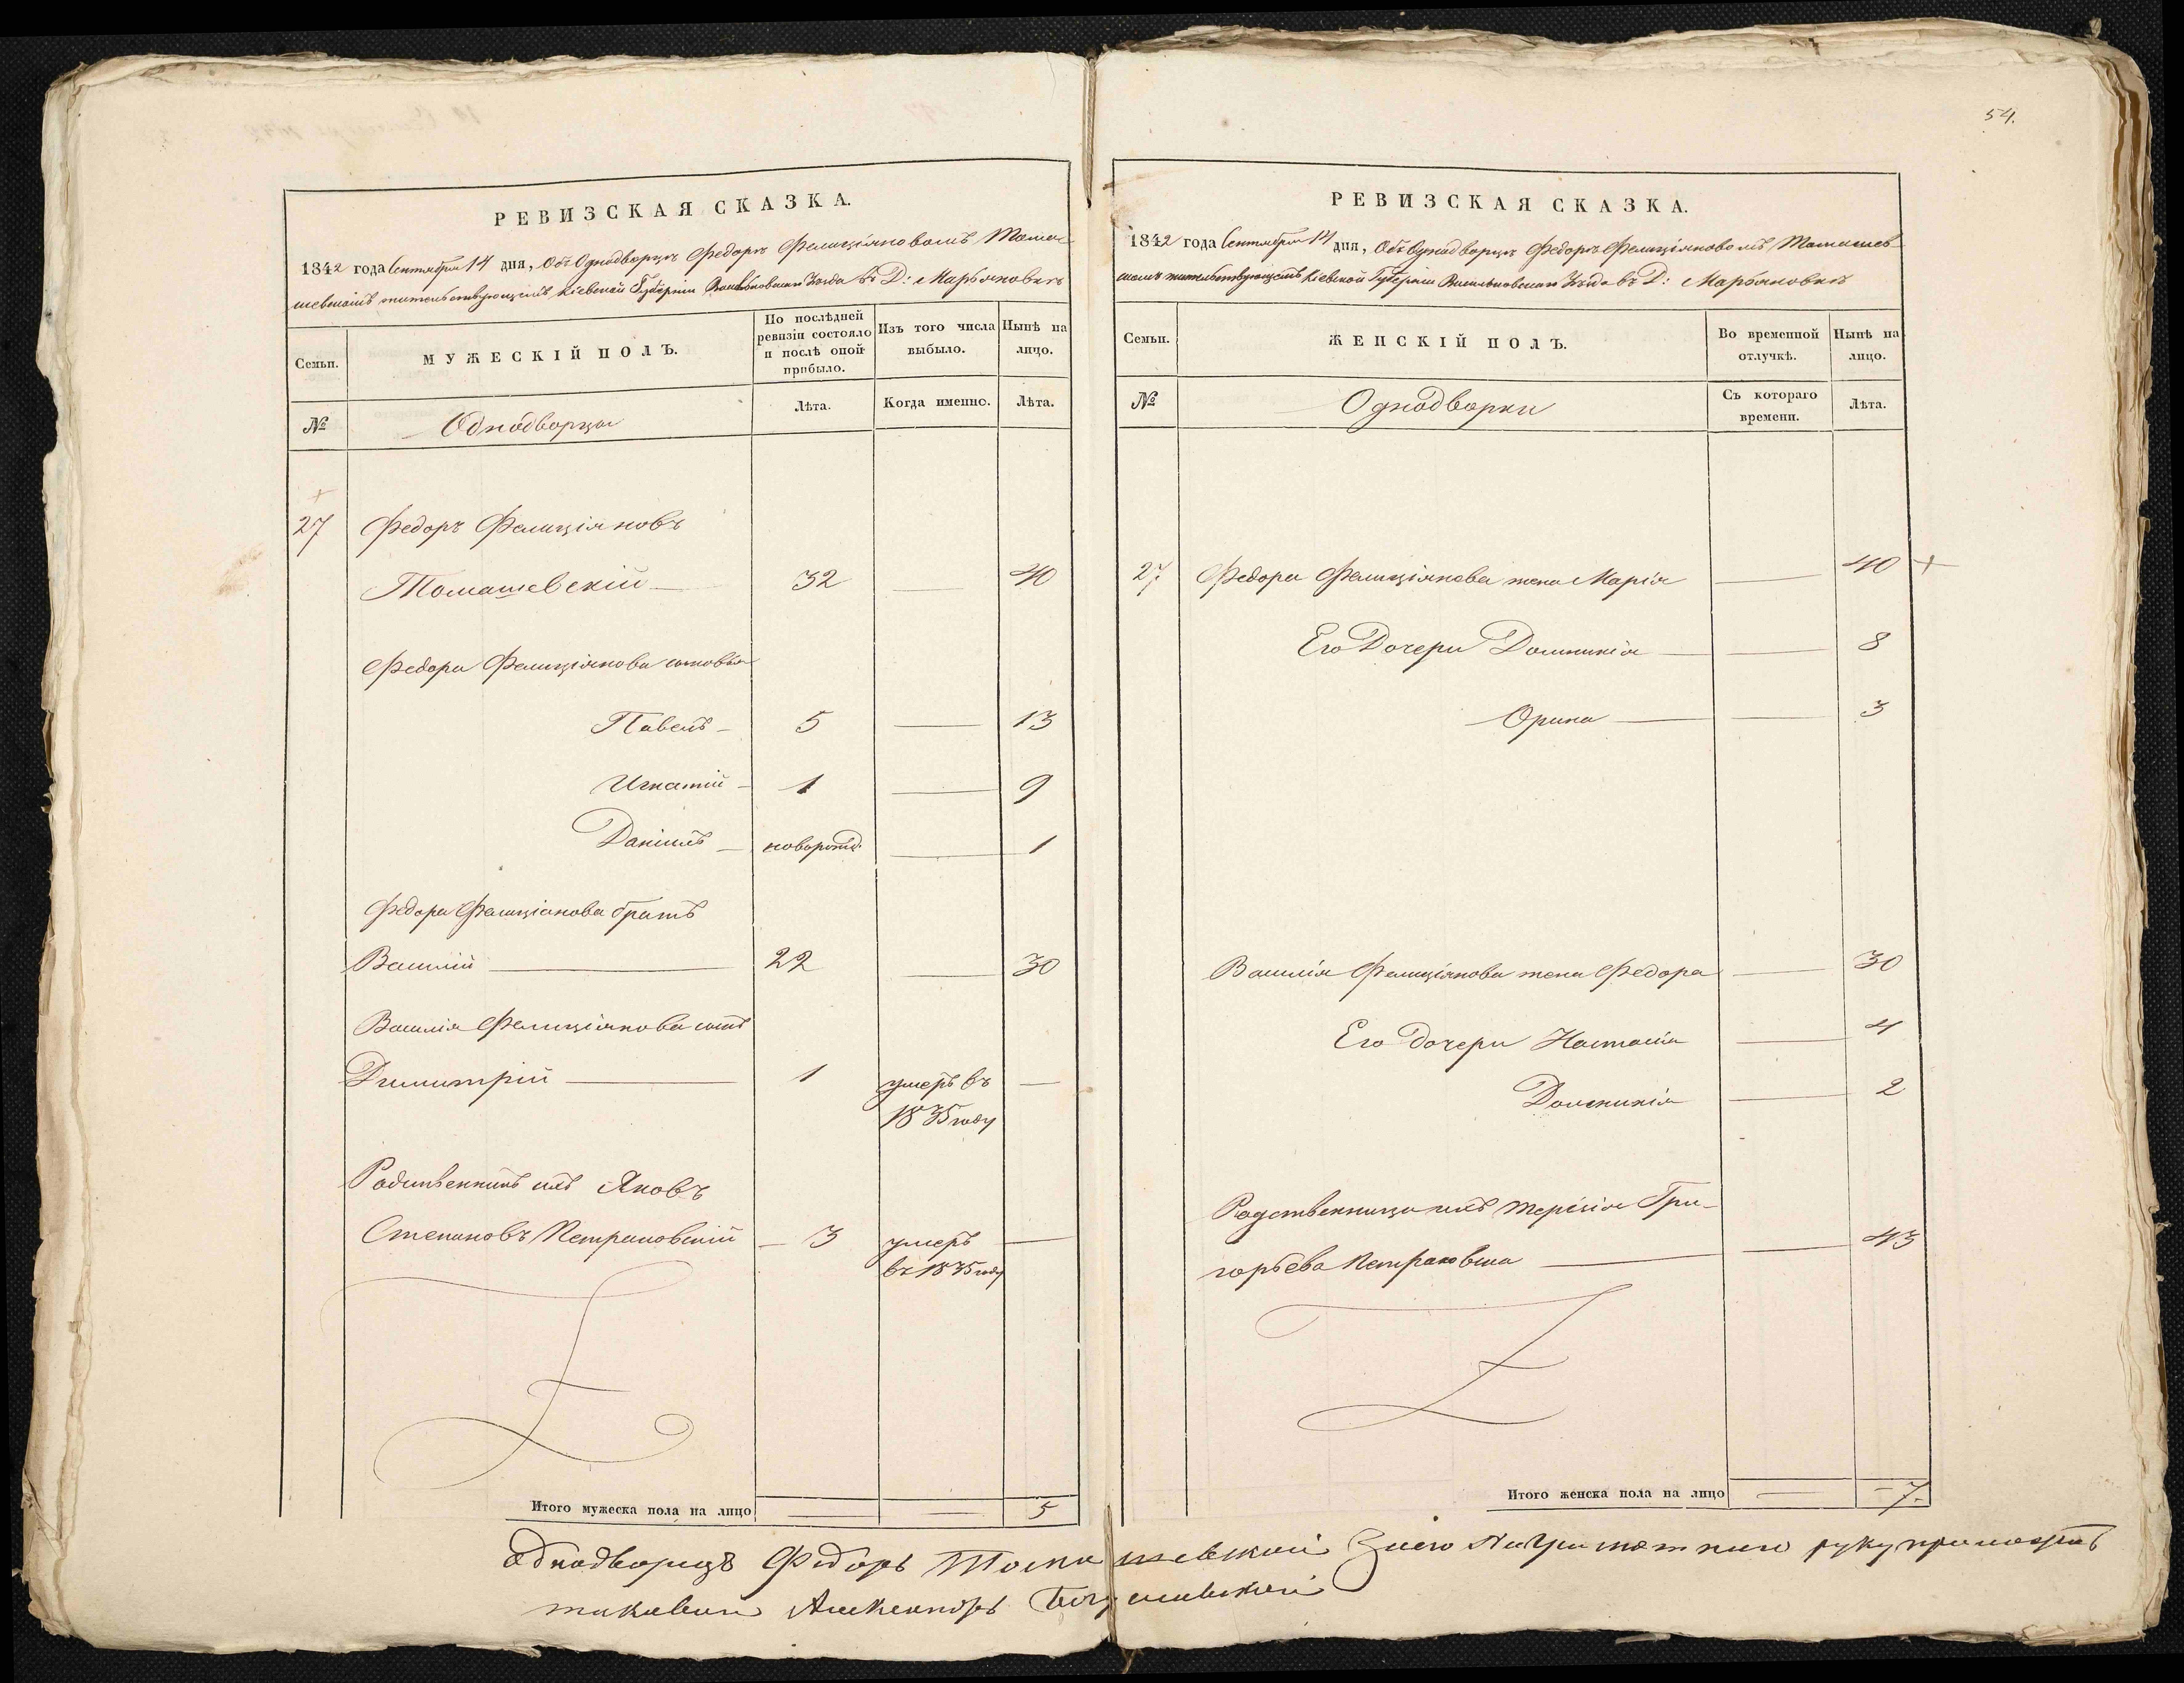 54.
РЕВИЗСКАЯ СКАЗКА.
1842 года Сентября 14 дня, Объ Однодворцѣ Федорѣ Фелиціяновомъ Тома-
шевскомъ жительствующемъ Кіевской Губерніи Васильковскаго Уѣзда въ Д: Марьяновкѣ
Семьи.
МУЖЕСКІЙ ПОЛЪ.
По послѣдней
ревизіи состояло
и послѣ оной
прибыло.
Изъ того числа
выбыло.
Нынѣ на
лицо.
№
Однодворцы
Лѣта.
Когда именно.
Лѣта.
27 Федоръ Фелиціяновъ
Томашевскій 32 — 40
Федора Фелиціянова сыновья
Павелъ 5 — 13
Игнатій 1 — 9
Даніилъ новорожд. — 1
Федора Фелиціанова братъ
Василій 22 — 30
Василія Фелиціянова сынъ
Димитрій 1 умеръ въ —
1835 году
Родственникъ ихъ Яковъ
Степановъ Петраковскій 3 умеръ —
въ 1835 году
Итого мужеска пола на лицо 5
РЕВИЗСКАЯ СКАЗКА.
1842 года Сентября 14 дня, Объ Однодворцѣ Федорѣ Фелиціяновомъ Томашев-
скомъ жительствующемъ Кіевской Губерніи Васильковскаго Уѣзда въ Д: Марьяновкѣ
Семьи.
ЖЕНСКІЙ ПОЛЪ.
Во временной
отлучкѣ.
Нынѣ на
лицо.
№
Однодворки
Съ котораго
времени.
Лѣта.
27. Федора Фелиціянова жена Марія — 40
Его Дочери Домникія — 8
Орина — 3
Василія Фелиціянова жена Федора — 30
Его дочери Настасія — 4
Домникія — 2
Родственница ихъ Терезія Гри-
горьева Петраковска — 43
Итого женска пола на лицо 7.
Однодворецъ Федоръ Томашевский а за его неграмотного руку приложилъ
таковой Александръ